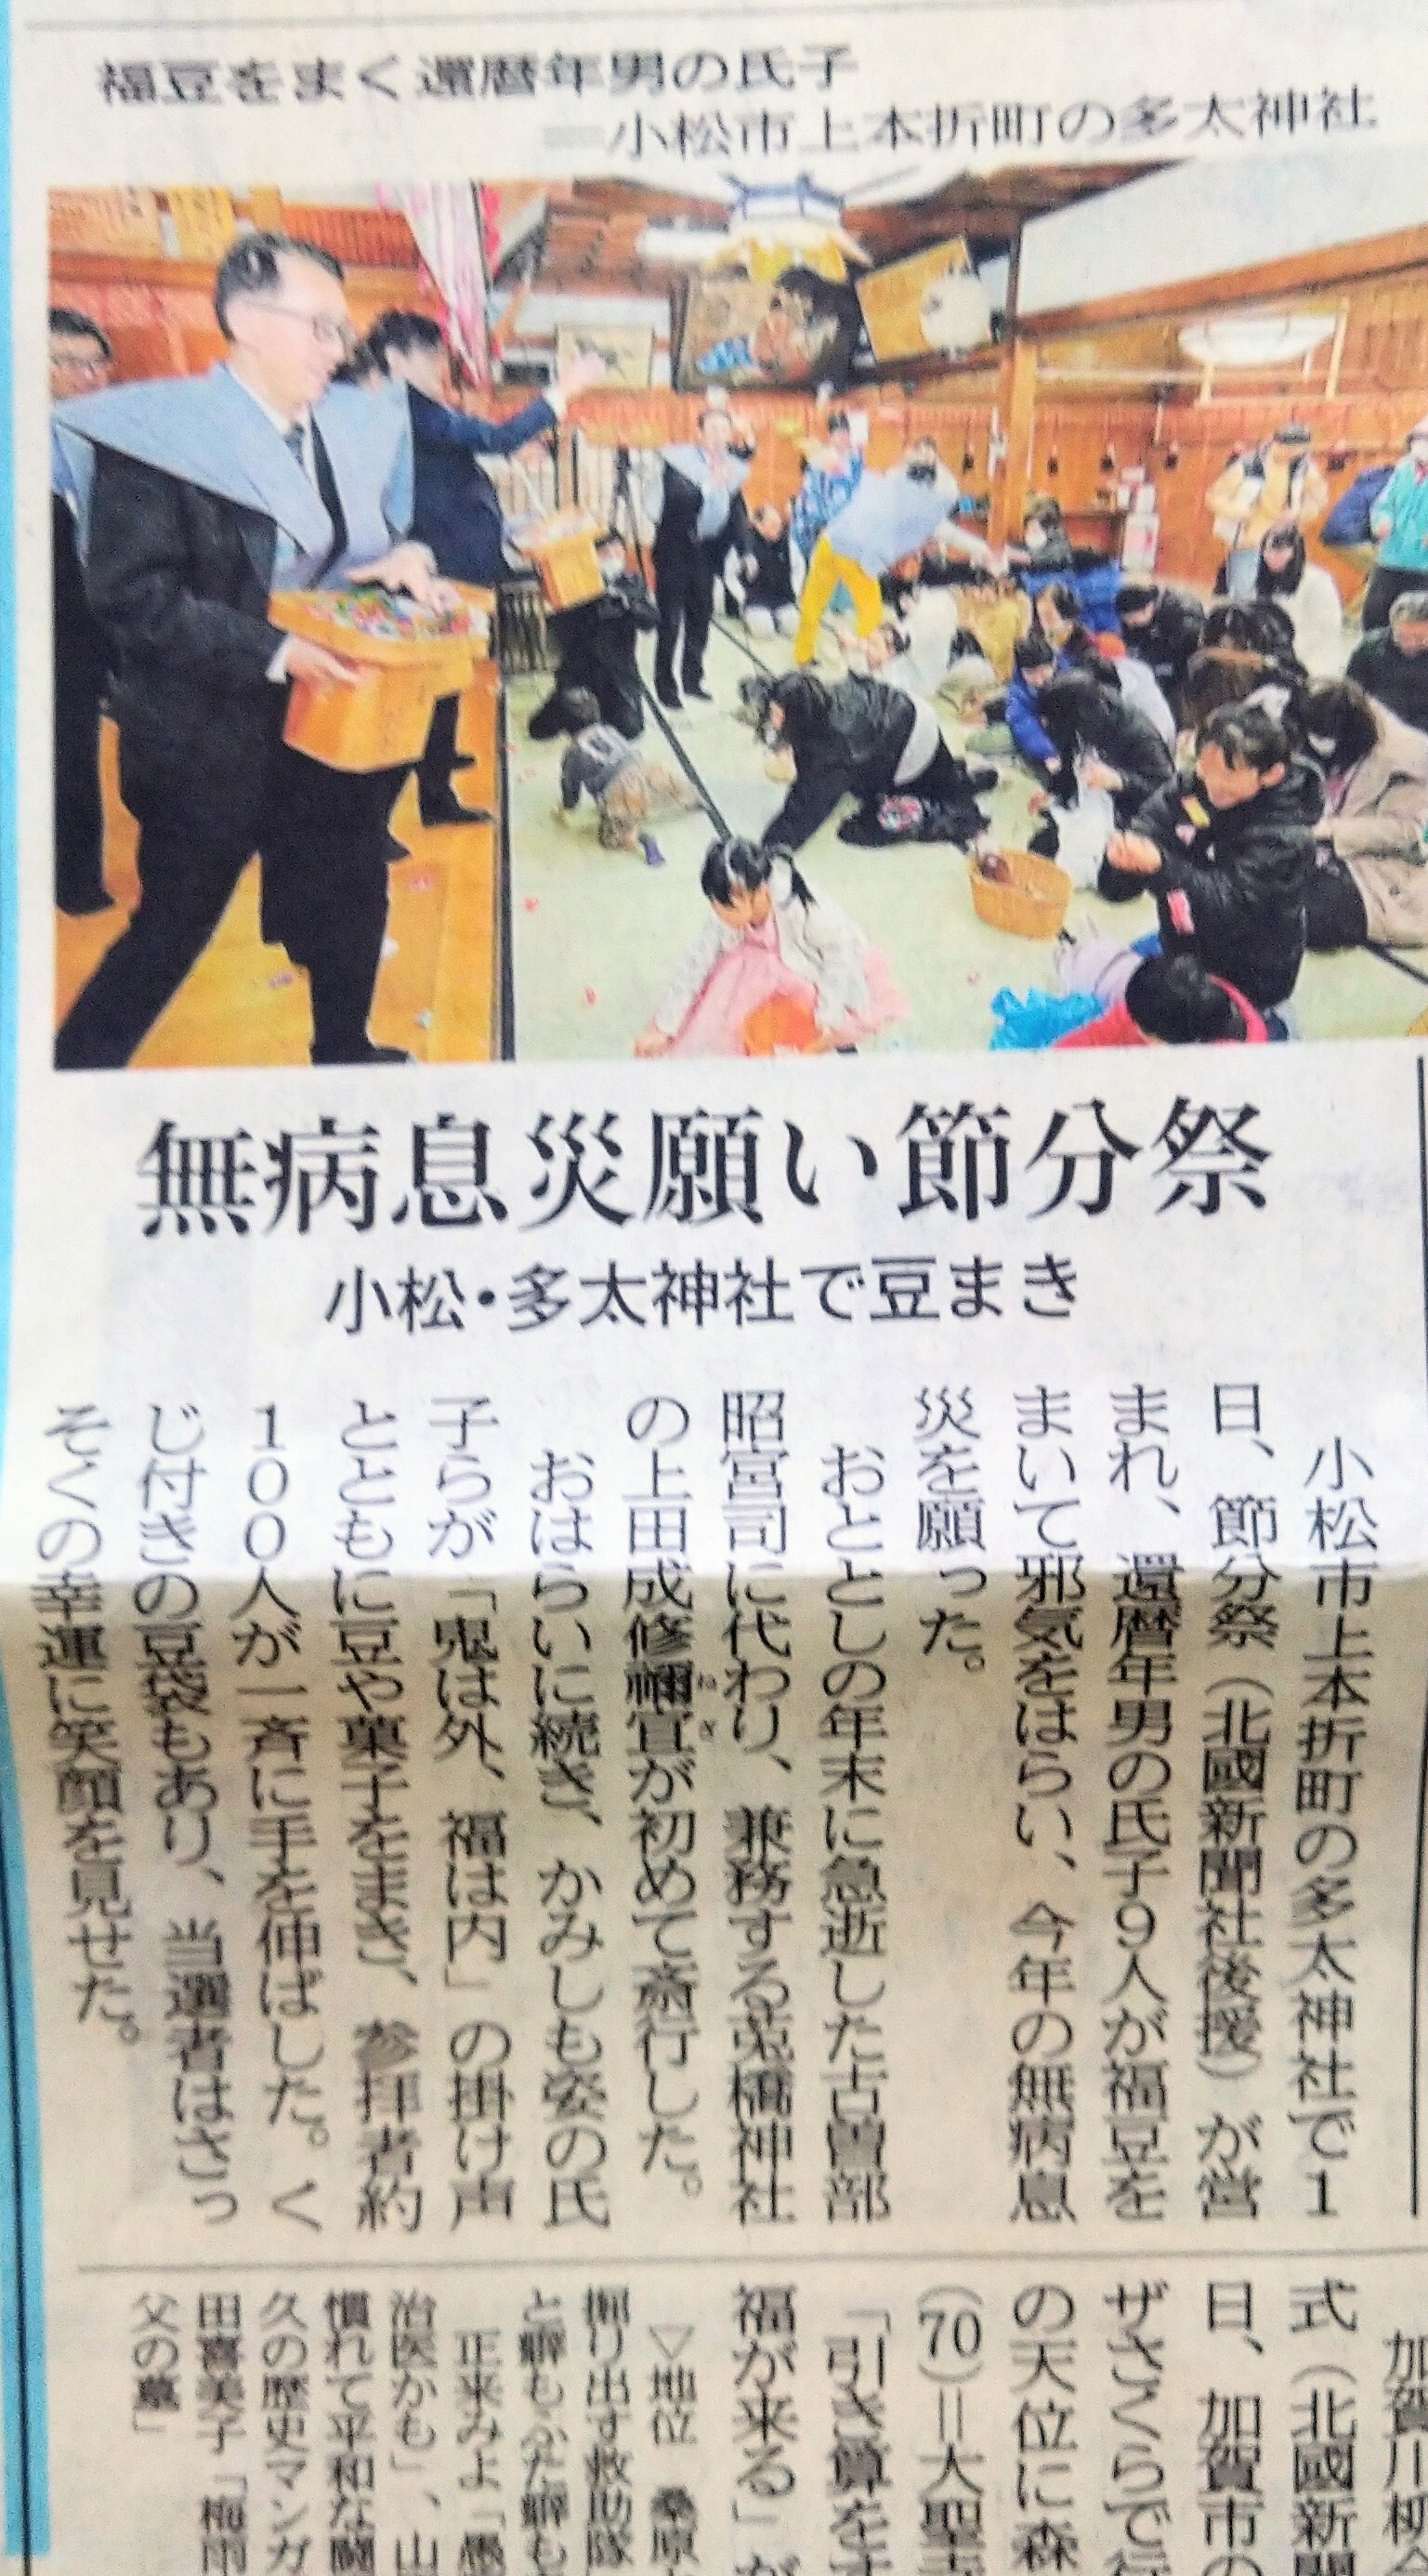 福豆をまく還暦年男の氏子
=小松市上本折町の多太神社
無病息災願い節分祭
小松・多太神社で豆まき
小松市上本折町の多太神社で1
日、節分祭(北國新聞社後援)が営
まれ、還暦年男の氏子9人が福豆を
まいて邪気をはらい、今年の無病息
災を願った。
おととしの年末に急逝した古曽部
昭宮司に代わり、兼務する莵橋神社
の上田成修禰宜が初めて斎行した。
ねぎ
おはらいに続き、かみしも姿の氏
子らが「鬼は外、福は内」の掛け声
とともに豆や菓子をまき、参拝者約
100人が一斉に手を伸ばした。く
じ付きの豆袋もあり、当選者はさっ
そくの幸運に笑顔を見せた。
加賀川柳
式(北國新聞
日、加賀市の
ザさくらで
の天位に森
(70)=大聖
「引き算をす
福が来る」が
▽地位 桑原
掘り出す救助隊
と癖もふた癖も
正来みよ「愚
治医かも」、山
慣れて平和な闘
久の歴史マンガ
田喜美子「梅雨
父の章」